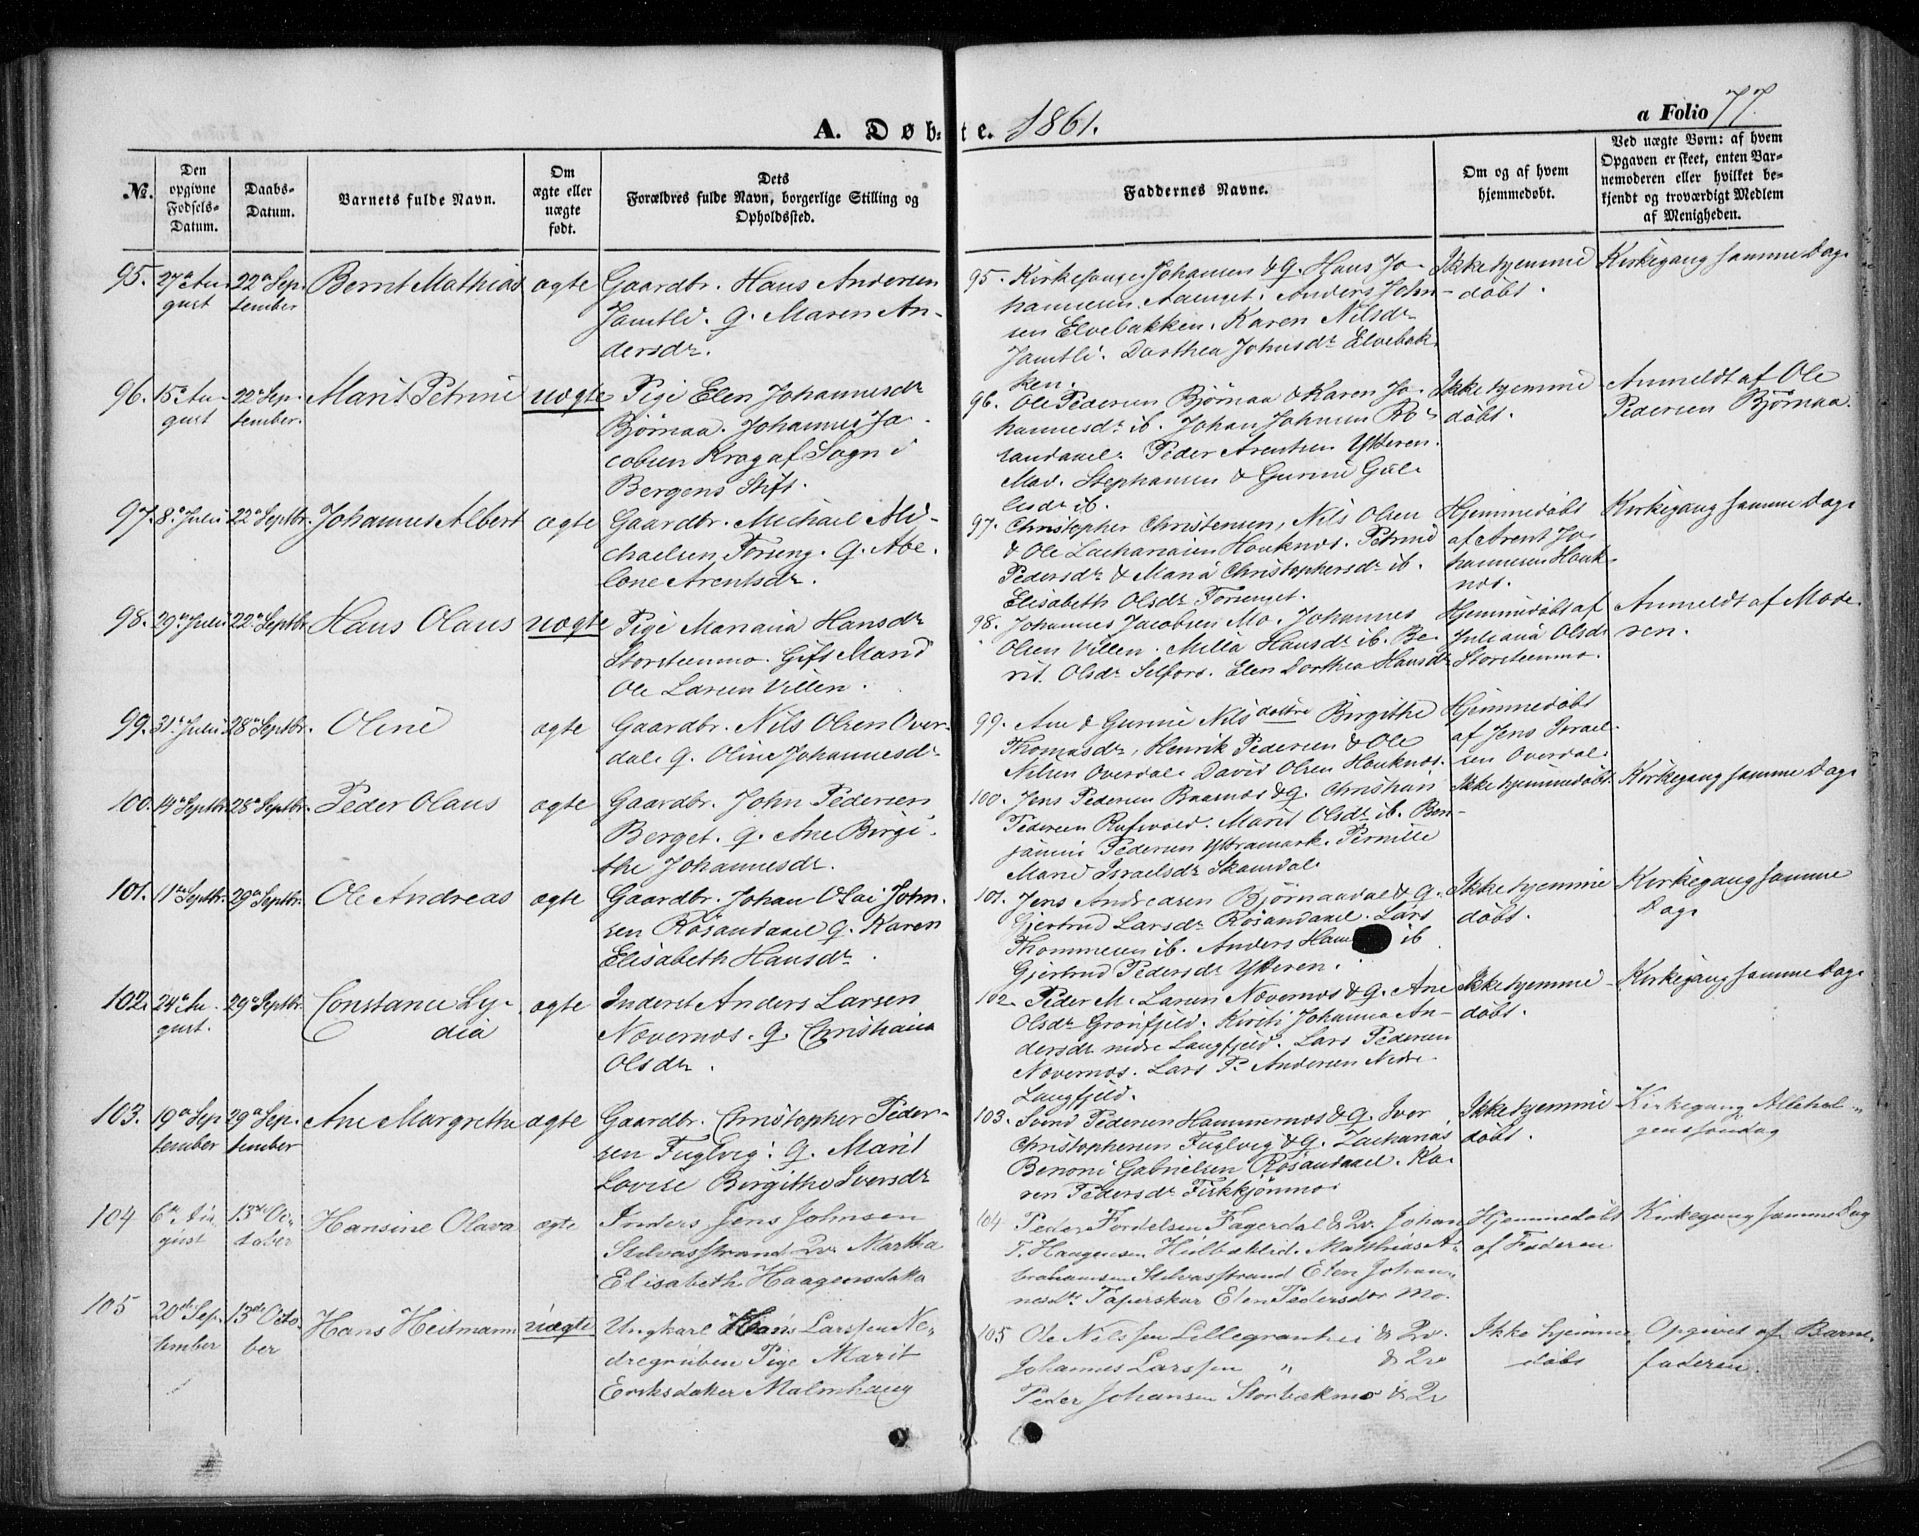 A. Døbte. 1861.
a Folio 77.
No.
Den opgivne Fødsels-Datum.
Daabs-Datum.
Barnets fulde Navn.
Om ægte eller uægte født.
Dets Forældres fulde Navn, borgerlige Stilling og Opholdssted.
Faddernes Navne.
Om og af hvem hjemmedøbt.
Ved uægte Børn: af hvem Opgaven er skeet, enten Barnemoderen eller hvilket bekjendt og troværdigt Medlem af Menigheden.
95. 27a Au- 22a Sep- Bernt Mathias ægte Gaardbr. Hans Andersen
gust tember Jamtli. Q. Maren An-
dersdr.
95. Kirkesanger Johansen & Q. Hans Jo-
hannesen Aaenget. Anders John-
sen Elvebakken. Karen Nilsdr
Jamtli. Dorthea Johnsdr Elvebak-
ken.
Ikke hjemme-
døbt.
Kirkegang samme Dag.
96. 15a Au- 22a Sep- Marit Petrine uægte Pige Elen Johannesdr
gust tember. Bjørnaa. Johannes Ja-
cobsen Krog af Sogn i
Bergens Stift.
96. Ole Pedersen Bjørnaa & Karen Jo-
hannesdr ib. Johan Johnsen Rø-
sandaael. Peder Arentsen Ytteren.
Mad. Stephansen & Gurine Gul-
lesdr ib.
Ikke hjemme-
døbt.
Anmeldt af Ole
Pedersen Bjørnaa.
97. 8a Julii 22a Septbr. Johannes Albert ægte Gaardbr. Michael Mi-
chaelsen Forseng. Q. Abe-
lone Arentsdr.
97. Christopher Christensen, Nils Olsen
& Ole Zachariasen Hauknes. Petrine
Pedersdr & Maria Christophersdr ib.
Elisabeth Olsdr Forsenget.
Hjemmedøbt
af Arent Jo-
hannesen Hauk-
nes.
Kirkegang samme Dag.
98. 29a Julii 22a Septbr. Hans Olaus uægte Pige Mariana Hansdr
Storstenmo. Gift Mand
Ole Larsen Villen.
98. Johannes Jacobsen Mo. Johannes
Olsen Villen. Milla Hansdr ib. Be-
rit Olsdr Selfors. Elen Dorthea Hansdr
Hjemmedøbt af
Juliana Olsdr
Storstenmo.
Anmeldt af Mode-
ren.
99. 31a Julii 28a Septbr. Oline ægte Gaardbr. Nils Olsen Over-
dal. Q. Oline Johannesdr
99. Ane & Gurine Nils døttre Birgithe
Thomasdr, Henrik Pedersen & Ole
Nilsen Overdal. David Olsen Hauknes.
Hjemmedøbt
af Jens Israel-
sen Overdal.
100. 14a Septbr. 28a Septbr. Peder Olaus ægte Gaardbr. John Pedersen
Berget. Q. Ane Birgi-
the Johannesdr.
100. Jens Pedersen Baasmos & Q. Christian
Pedersen Rufsvold. Marit Olsdr ib. Ben-
jamin Pedersen Yttramark. Pernille
Marie Israelsdr Skamdal.
Ikke hjemmedøbt.
Kirkegang samme Dag.
101. 11te Septbr. 29a Septbr. Ole Andreas ægte Gaardbr. Johan Olai John-
sen Røsandaael Q. Karen
Elisabeth Hansdr.
101. Jens Andreasen Bjørnaadal & Q.
Gjertrud Larsdr Røsandaael. Lars
Thommesen ib. Anders Han ib
Gjertrud Pedersdr Ytteren.
Ikke hjemme
døbt.
Kirkegang samme
Dag.
102. 24a Au- 29a Septbr. Constance Ly- ægte Inderst Anders Larsen
gust. dia Novernes. Q. Christiana
Olsdr.
102. Peder M. Larsen Novernes & Q. Ane
Olsdr Grønfjeld. Kirsti Johanna An-
dersdr nedre Langfjeld. Lars Pedersen
Novernes. Lars P. Andersen Nedre
Langfjeld.
Ikke hjemme-
døbt.
Kirkegang samme Dag.
103. 19a Sep- 29a Sep- Ane Margrethe ægte Gaardbr. Christopher Peder-
tember tember sen Fuglvig. Q. Marit
Lovise Birgithe Iversdr
103. Svend Pedersen Hammernes & Q. Iver
Christophersen Fuglvig & Q. Zacharias
Benoni Gabrielsen Røsandaael. Ka-
ren Pedersdr Fiskkjønmo.
Ikke hjemme
døbt.
Kirkegang Allehel-
gens Søndag
104 6te Au- 13de Oc- Hansine Olava ægte Inders Jens Johnsen
gust tober Selvasstrand Qv. Martha
Elisabeth Haagensdaka
104 Peder Fordelsen Fagerdal & Qv. Johan
T. Haagensen Hulbæklid. Matthias A-
brahamsen Selvasstrand Elen Johan-
nesdtr Taperskar Elen Pedersdtr Mo.
Hjemmedøbt
af Faderen
Kirkegang samme Dag
105 20de Sep- 13de Octo- Hans Heitmann uægte Ungkarl Hans Larssen Ne-
tember ber dregruben Pige Marit
Eriksdaker Malmhaug
105 Ole Nilssen Lillegranhei & Qv.
Johannes Larssen " & Qv
Peder Johansen Storbækmo & Qv
Ikke hjemme-
døbt
Opgivet af Barne-
faderen.